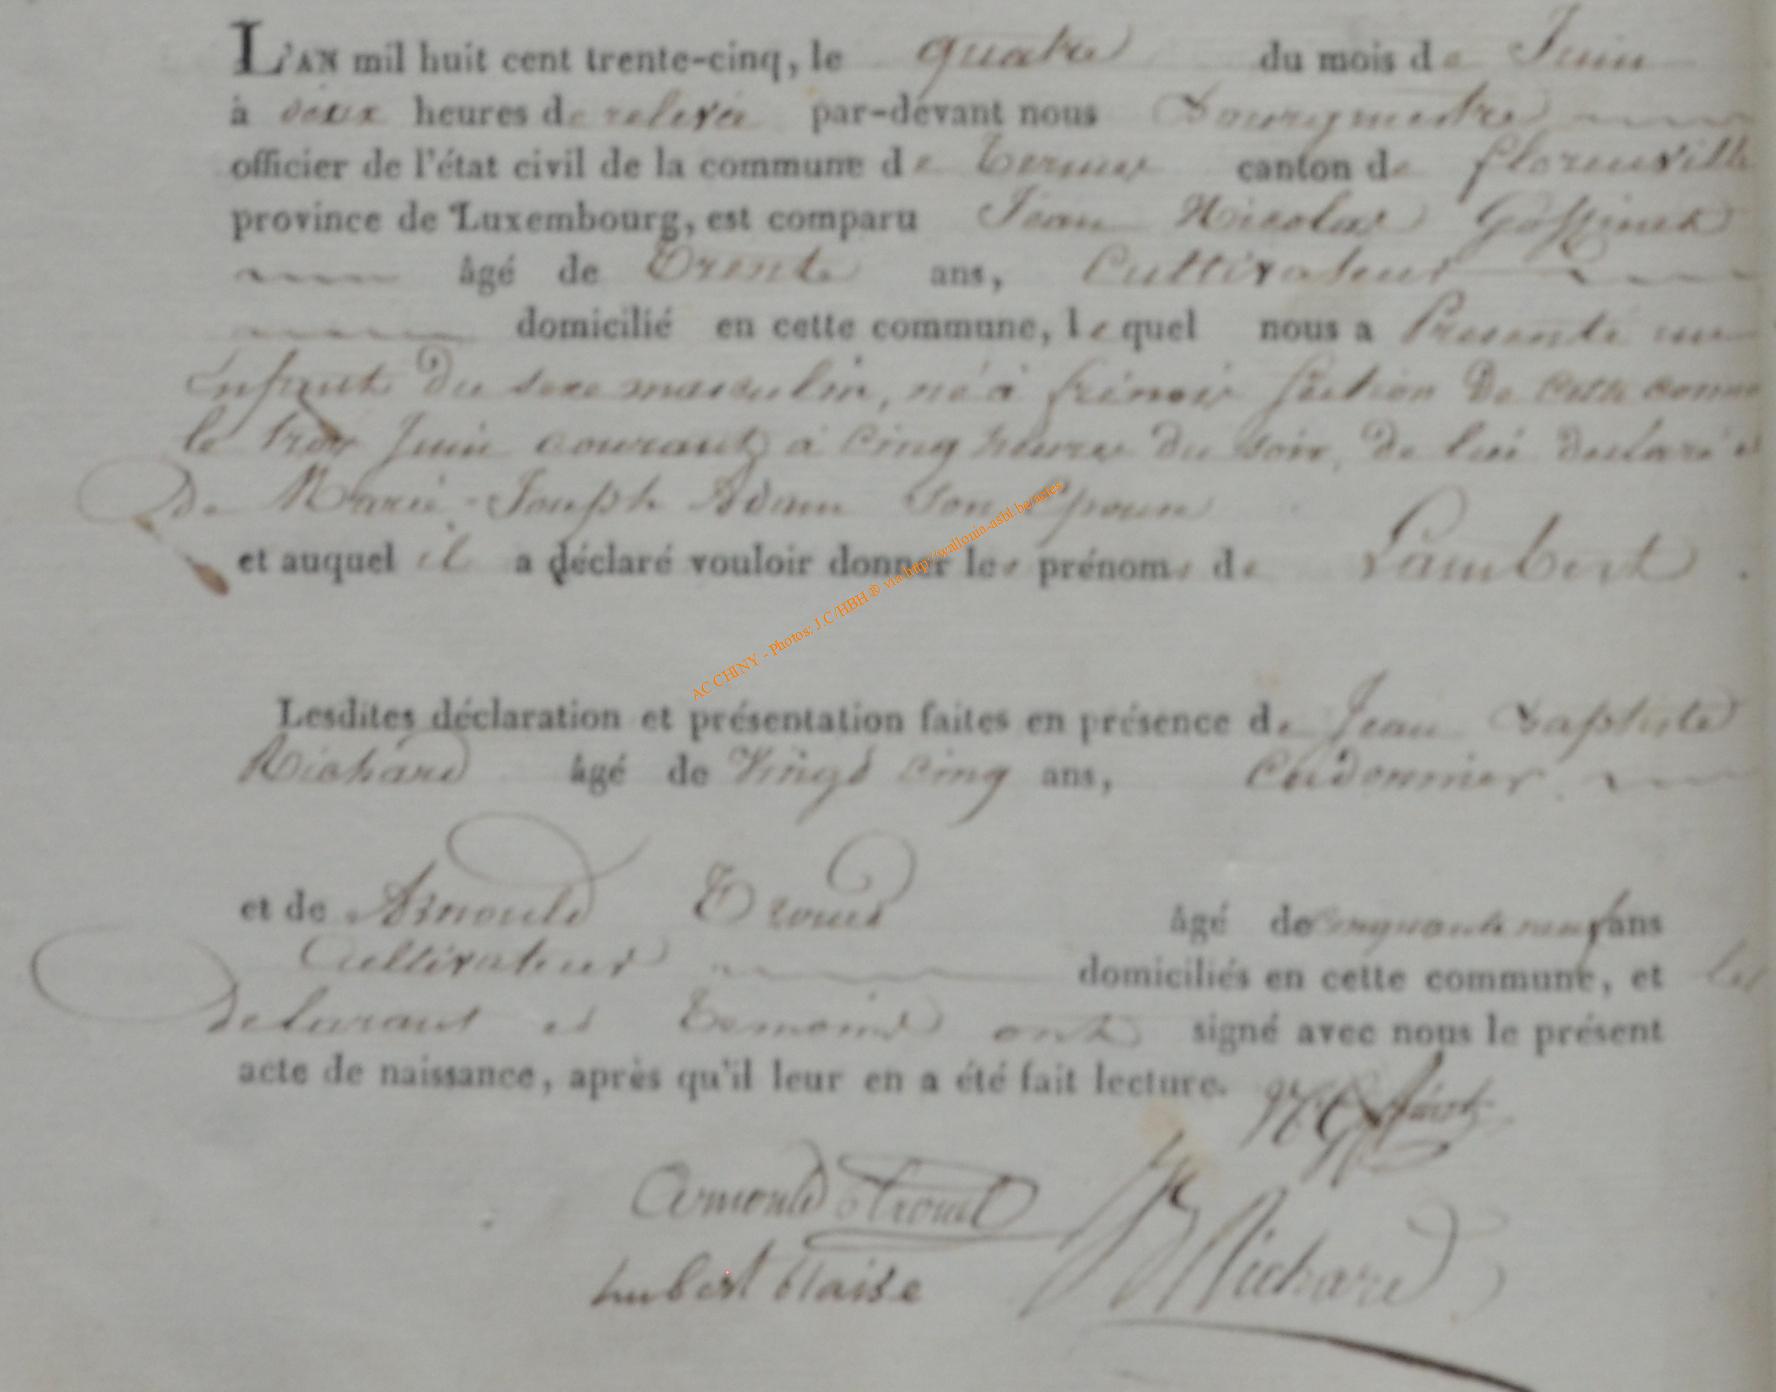 L'AN mil huit cent trente-cinq, le quatre du mois de Juin
à deux heures de relevée par-devant nous Bourgmestre
officier de l'état civil de la commune de Termes canton de florenville
province de Luxembourg, est comparu Jean Nicolas Goffinet
âgé de Trente ans, Cultivateur
domicilié en cette commune, lequel nous a Presenté un
Enfant du sexe masculin, né à frénois section de cette comm
le trois Juin courant à cinq heures du soir, de lui declaré et
de Marie-Joseph Adam son Epouse
et auquel il a déclaré vouloir donner les prénoms de Lambert.
AC CHINY - Photos: J.C/HBH ® via http://wallonia-asbl.be/actes
Lesdites déclaration et présentation faites en présence de Jean Baptiste
Richard âgé de Vingt cinq ans, Cordonnier
et de Arnould âgé de Cinquante neuf ans
Cultivateur domiciliés en cette commune, et les
declarant et Temoins ont signé avec nous le présent
acte de naissance, après qu'il leur en a été fait lecture.
Arnould
Richard
hubert blaise